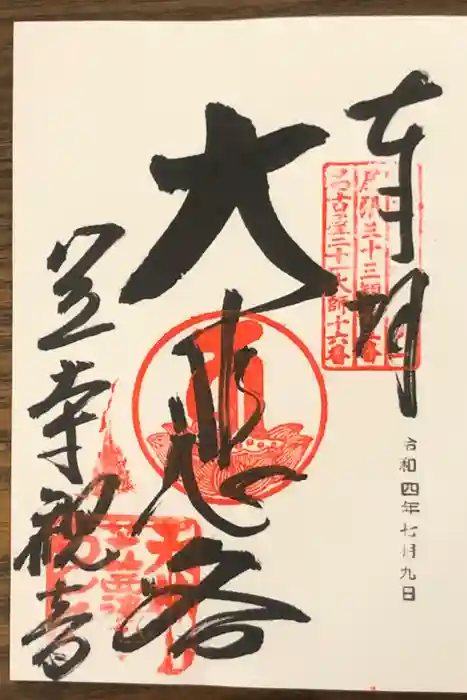 奉拝
令和四年七月九日
尾張三十三観音
名古屋二十一大師十六番
大悲閣
笠寺観音